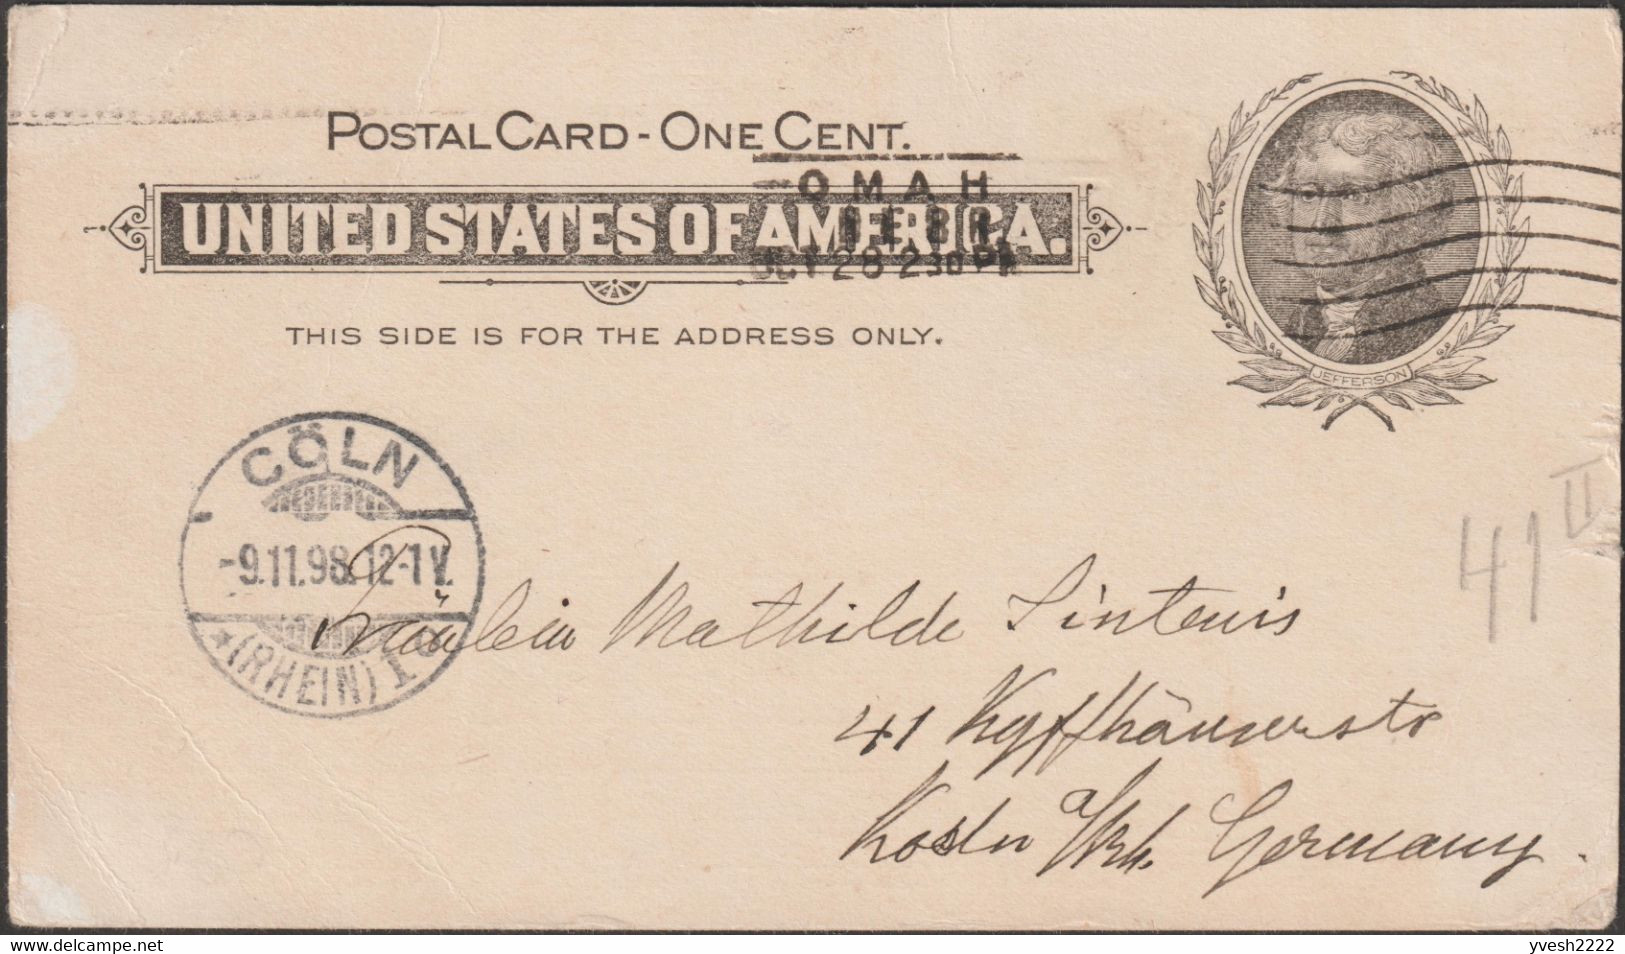 POSTAL CARD - ONE CENT.
OMAH
UNITED STATES OF AMERICA.
OCT 28 230 PM
THIS SIDE IS FOR THE ADDRESS ONLY.
JEFFERSON
CÖLN
-9.11.98.12-1V.
★ (RHEIN) 1
41 II
Fräulein Mathilde Sintenis
41 Kyffhäuserstr
Koeln a/Rh. Germany.
yvesh2222